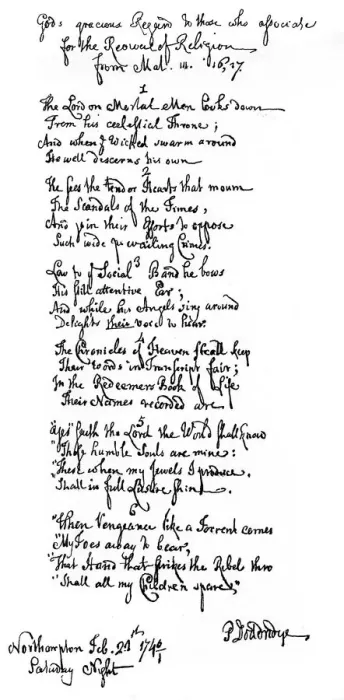 God's gracious Regard to those who associate
for the Revival of Religion
from Mal. iii. 16, 17.
1
The Lord on Mortal Men looks down
From his cœlestial Throne;
And when ye Wicked swarm around
He well discerns his own
2
He sees the tender Hearts that mourn
The Scandals of the Times,
And join their Efforts to oppose
Such wide prevailing Crimes.
3
Low to ye Social Band he bows
His still attentive Ear;
And while his Angels sing around
Delights their voice to hear.
4
The Chronicles of Heaven shall keep
Their Words in Transcript fair;
In the Redeemers Book of Life
Their Names recorded are
5
"Yes saith the Lord the World shall know
"These humble Souls are mine:
"These when my Jewels I produce.
"Shall in full Lustre shine.
6
"When Vengeance like a Torrent comes
"My Foes away to bear,
"That Hand that strikes the Rebel thro
"Shall all my Children spare,"
P Doddridge
Northampton Feb. 21th 1740/1
Saturday Night